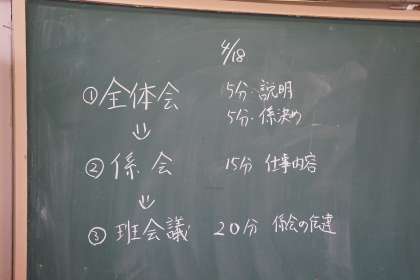 4/18
①全体会 5分・説明
5分・係決め
⇓
②係会 15分 仕事内容
⇓
③班会議 20分 係会の伝達